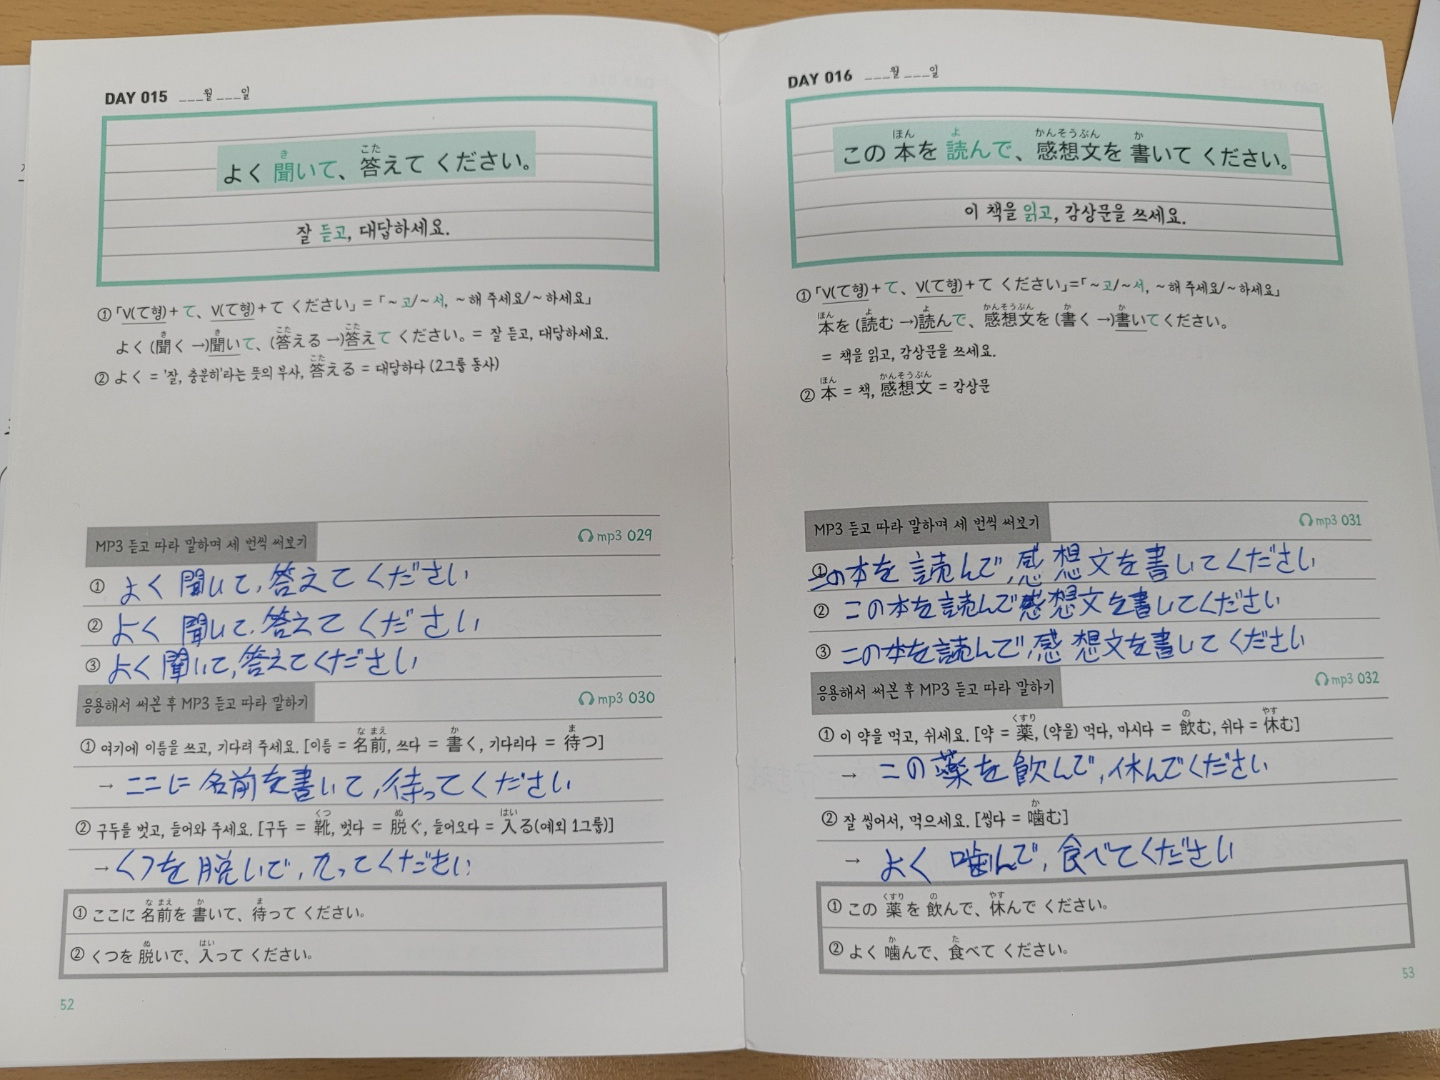 DAY 015 ___월 ___일
き こた
よく 聞いて、答えて ください。
잘 듣고, 대답하세요.
①「V(て형)+て、V(て형)+て ください」=「~고/~서, ~해 주세요/~하세요」
き き こた こた
よく (聞く →)聞いて、(答える →)答えて ください。= 잘 듣고, 대답하세요.
こた
② よく = '잘, 충분히'라는 뜻의 부사, 答える = 대답하다 (2그룹 동사)
MP3 듣고 따라 말하며 세 번씩 써보기 mp3 029
① よく 聞いて,答えて ください
② よく 聞いて,答えて ください
③ よく 聞いて,答えてください
응용해서 써본 후 MP3 듣고 따라 말하기 mp3 030
な まえ か ま
① 여기에 이름을 쓰고, 기다려 주세요. [이름 = 名前, 쓰다 = 書く, 기다리다 = 待つ]
→ ここに 名前を書いて,待ってください
くつ ぬ はい
② 구두를 벗고, 들어와 주세요. [구두 = 靴, 벗다 = 脱ぐ, 들어오다 = 入る(예외 1그룹)]
→ くつを 脱いで, 入ってください
な まえ か ま
① ここに 名前を 書いて、待って ください。
ぬ はい
② くつを 脱いで、入って ください。
52
DAY 016 ___월 ___일
ほん よ かんそうぶん か
この 本を 読んで、感想文を 書いて ください。
이 책을 읽고, 감상문을 쓰세요.
①「V(て형)+て、V(て형)+て ください」=「~고/~서, ~해 주세요/~하세요」
ほん よ よ かんそうぶん か か
本を (読む →)読んで、感想文を (書く →)書いてください。
= 책을 읽고, 감상문을 쓰세요.
ほん かんそうぶん
② 本 = 책, 感想文 = 감상문
MP3 듣고 따라 말하며 세 번씩 써보기 mp3 031
① この本を 読んで,感想文を書いてください
② この本を読んで感想文を書いてください
③ この本を読んで,感想文を書いてください
응용해서 써본 후 MP3 듣고 따라 말하기 mp3 032
くすり の やす
① 이 약을 먹고, 쉬세요. [약 = 薬, (약을) 먹다, 마시다 = 飲む, 쉬다 = 休む]
→ この薬を飲んで,休んでください
か
② 잘 씹어서, 먹으세요. [씹다 = 噛む]
→ よく 噛んで,食べてください
くすり の やす
① この 薬を 飲んで、休んで ください。
か た
② よく 噛んで、食べて ください。
53